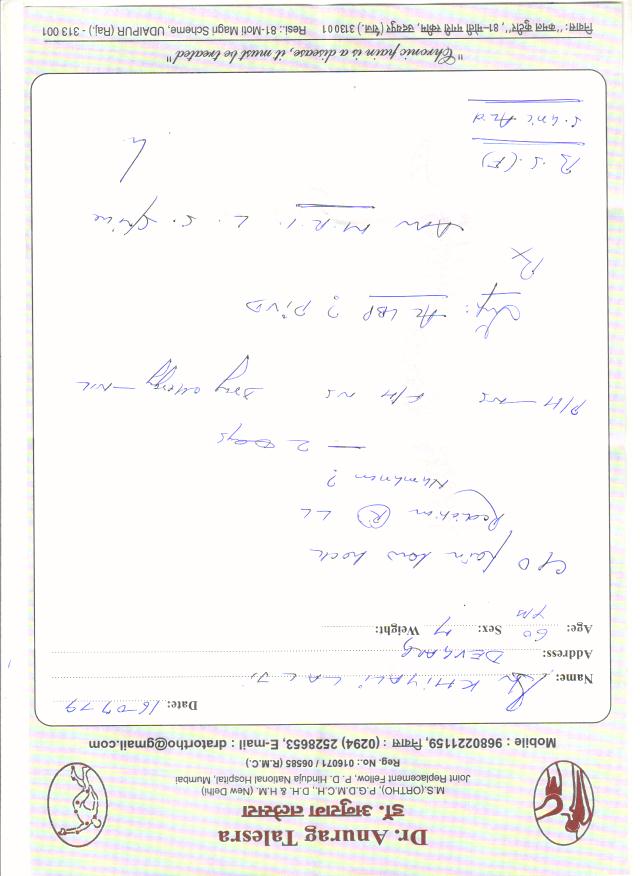 Dr. Anurag Talesra
डॉ. अनुराग तलेसरा
M.S. (ORTHO), P.G.D.M.C.H., D.H. & H.M. (New Delhi)
Joint Replacement Fellow, P. D. Hinduja National Hospital, Mumbai
Reg. No.: 016071 / 06585 (R.M.C.)
Mobile : 9680221159, निवास : (0294) 2528653, E-mail : dratortho@gmail.com
Date: 16-07-19
Name: KHIYALI LAL JI
Address: DEVGARH
Age: 60 Yrs Sex: M Weight:
C/O Pain low back
Radiation R LL
Numbness ?
— 2 Days
P/H — NS F/H NS Drug allergy — NIL
AC LBP ? PIVD
Rx
Adv M.R.I. L. S. Spine
B.S. (F)
S. Uric Acid
"Chronic pain is a disease, it must be treated"
निवास: "कमल कुटीर", 81-मोती मगरी स्कीम, उदयपुर (राज.) 313001 Resi.: 81-Moti Magri Scheme, UDAIPUR (Raj.) - 313 001